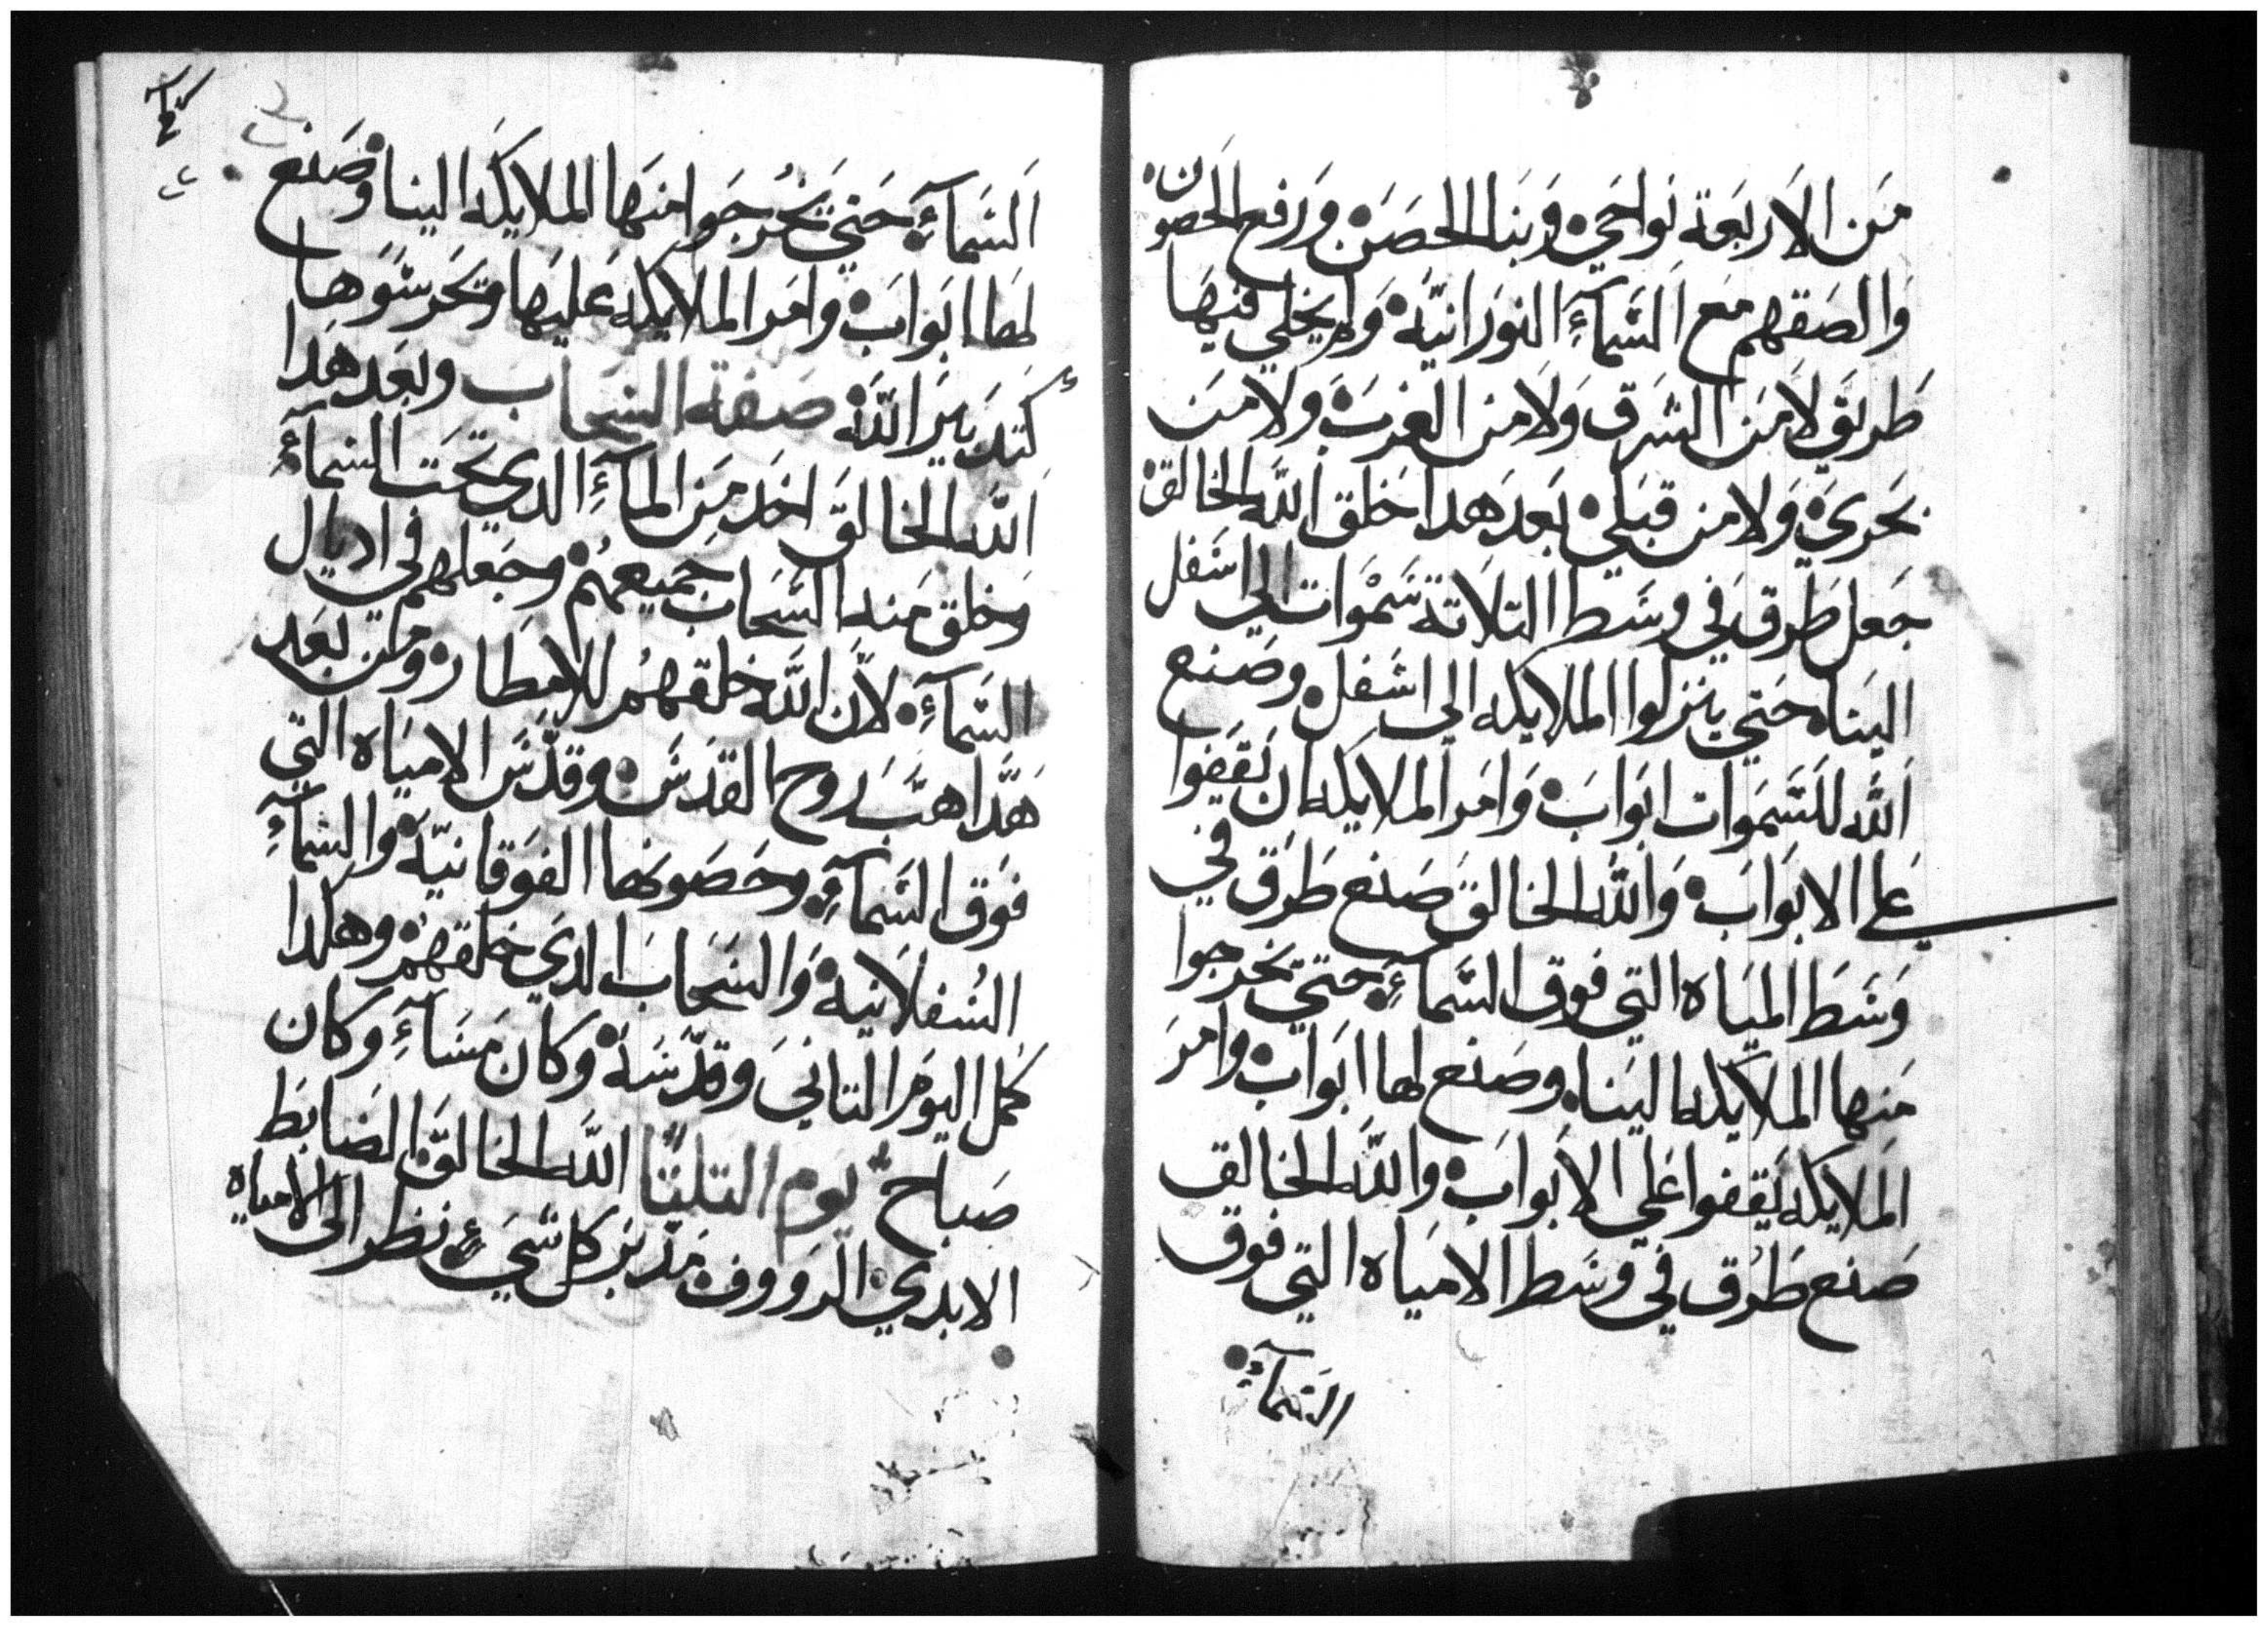 من الاربعة نواحي وبنا الحصن ورفع الحصون
والصقهم مع السمآء النورانية ولم يخلي فيها
طريق لا من الشرق ولا من الغرب ولا من
بحري ولا من قبلي بعد هدا خلق الله الخالق
جعل طرق في وسط التلاتة سموات الي اسفل
الينا حتي ينزلوا الملايكه الي اسفل وصنع
الله للسموات ابواب وامر الملايكه ان يقفوا
علي الابواب والله الخالق صنع طرق في
وسط المياه التي فوق السمآء حتي تخرجوا
منها الملايكه الينا وصنع لها ابواب وامر
الملايكه يقفوا علي الابواب والله الخالق
صنع طرق في وسط الامياه التي فوق
السمآء
السمآء حتي يخرجوا منها الملايكه الينا وصنع
لها ابواب وامر الملايكه عليها وتحرسوها
كتدبير الله صفة السحاب وبعد هدا
الله الخالق اخد من المآء الدي تحت السمآء
وخلق منه السحاب جميعهم وجعلهم في اديال
السمآء لان الله خلقهم للامطار ومن بعد
هدا هب روح القدس وقدس الامياه التي
فوق السمآء وحصونها الفوقانية والسمآء
السفلانية والسحاب الدي خلقهم وهكدا
كمل اليوم التاني وقدسه وكان مسآء وكان
صباح يوم التلتا الله الخالق الضابط
الابدي الرووف مدبر كل شيء نظر الى الامياه